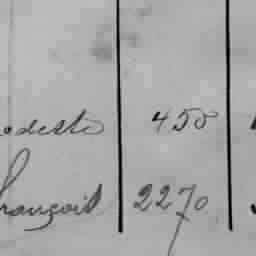 odeste 458
François 2270